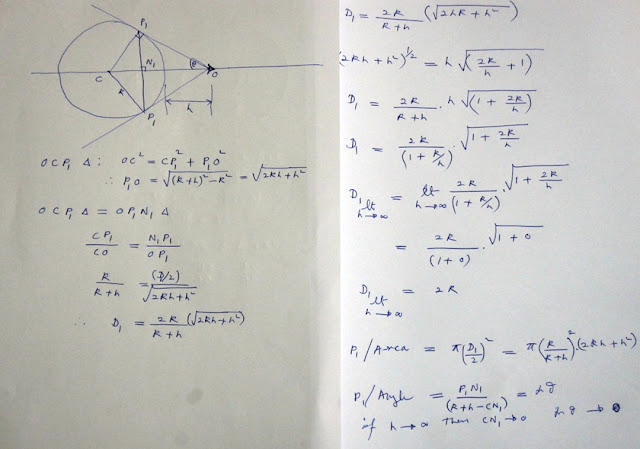 P₁
N₁
θ
C
O
R
h
P₁
OCP₁ Δ : OC² = CP₁² + P₁O²
∴ P₁O = √((R+h)² - R²) = √(2Rh+h²)
OCP₁ Δ = OP₁N₁ Δ
CP₁/CO = N₁P₁/OP₁
R/(R+h) = (D/2)/√(2Rh+h²)
∴ D₁ = 2R/(R+h) (√(2Rh+h²))
D₁ = 2R/(R+h) (√(2hR+h²))
(2Rh+h²)^(1/2) = h √(2R/h + 1)
D₁ = 2R/(R+h) · h √(1 + 2R/h)
D₁ = 2R/(1+R/h) · √(1 + 2R/h)
D₁ lt h→∞ = lt h→∞ 2R/(1+R/h) · √(1 + 2R/h)
= 2R/(1+0) · √(1+0)
D₁ lt h→∞ = 2R
P₁/Area = π(D₁/2)² = π(R/(R+h))² · (2Rh+h²)
P₁/Angle = P₁N₁/(R+h-CN₁) =
if h→∞ then CN₁→0